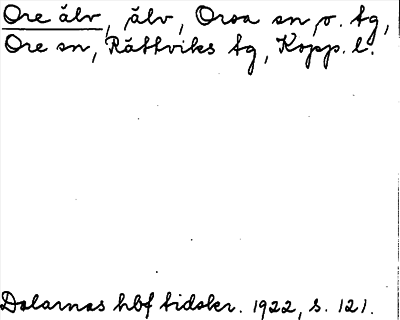 Ore älv, älv, Orsa sn o. tg,
Ore sn, Rättviks tg, Kopp. l.
Dalarnas hbf tidskr. 1922, s. 121.